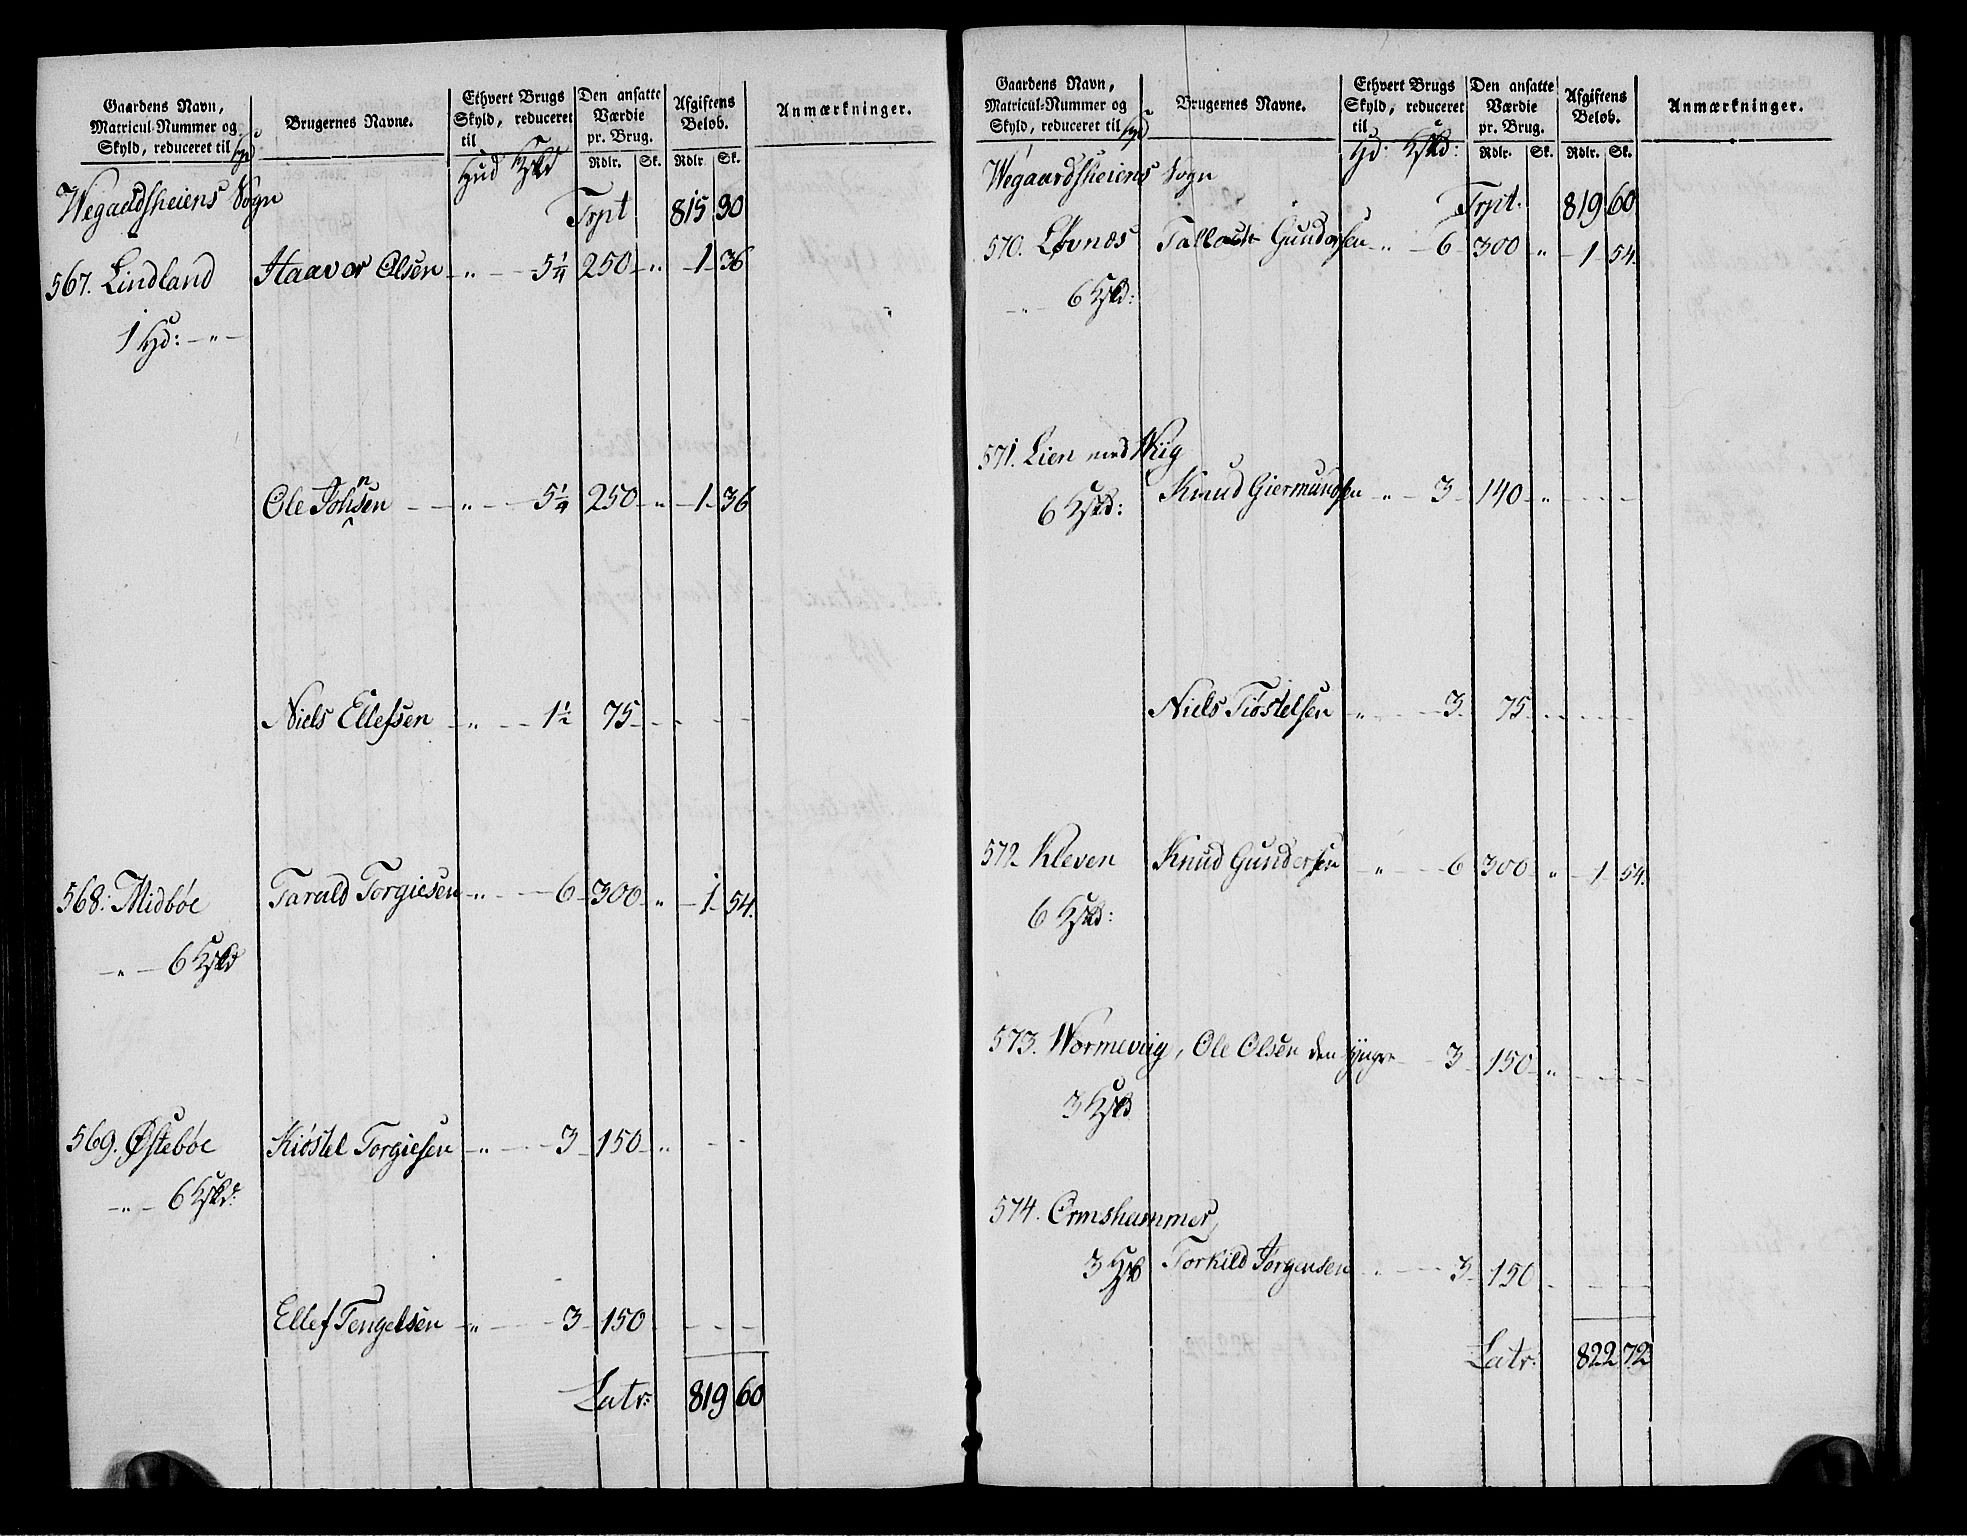 Gaardens Navn, Matricul-Nummer og Skyld, reduceret til Hud
Brugernes Navne.
Ethvert Brugs Skyld, reduceret til Hud Kskd
Den ansatte Værdie pr. Brug. Rdlr. Sk.
Afgiftens Beløb. Rdlr. Sk.
Anmærkninger.
Wegaardsheiens Sogn Trpt 815 90
567. Lindland Haavor Olsen - „ - 5 1/4 250 „ 1 36
1 Hd: - „ -
Ole Johnsen - „ - 5 1/4 250 „ 1 36
Niels Ellefsen - „ - 1 1/2 75 - - -
568. Midbøe Tarald Torgiesen - „ - 6 300 „ 1 54.
- „ - 6 Kskd
569. Østebøe Kiøstel Torgiesen - „ - 3 150 „ - -
- „ - 6 Kskd:
Ellef Tengelsen - „ - 3 150 - - -
Latr: 819 60
Gaardens Navn, Matricul-Nummer og Skyld, reduceret til
Brugernes Navne.
Ethvert Brugs Skyld, reduceret til Hd: Kskd:
Den ansatte Værdie pr. Brug. Rdlr. Sk.
Afgiftens Beløb. Rdlr. Sk.
Anmærkninger.
Wegaardsheiens Sogn Trpt. 819 60
570. Løvnes Gundersen „ 6 300 „ 1 54.
- „ - 6 Kskd:
571. Lien med Wiig
6 Kskd: Knud Giermundsen „ 3 140 „ - -
Niels Tiøstelsen „ 3 75 - - -
572 Kleven Knud Gundersen „ 6 300 „ 1 54.
6 Kskd:
573. Wormeviig, Ole Olsen den yngre 3 150 „ - -
3 Kskd
574. Ormshammer,
3 Kskd Torkild Jørgensen „ 3 150 - - -
Latr: 822 72